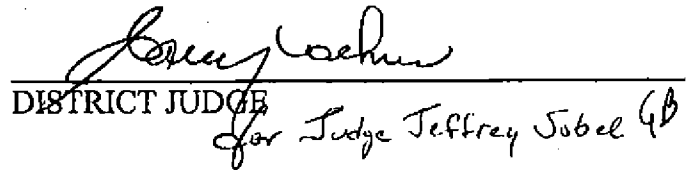 DISTRICT JUDGE
for Judge Jeffrey Sobel GB